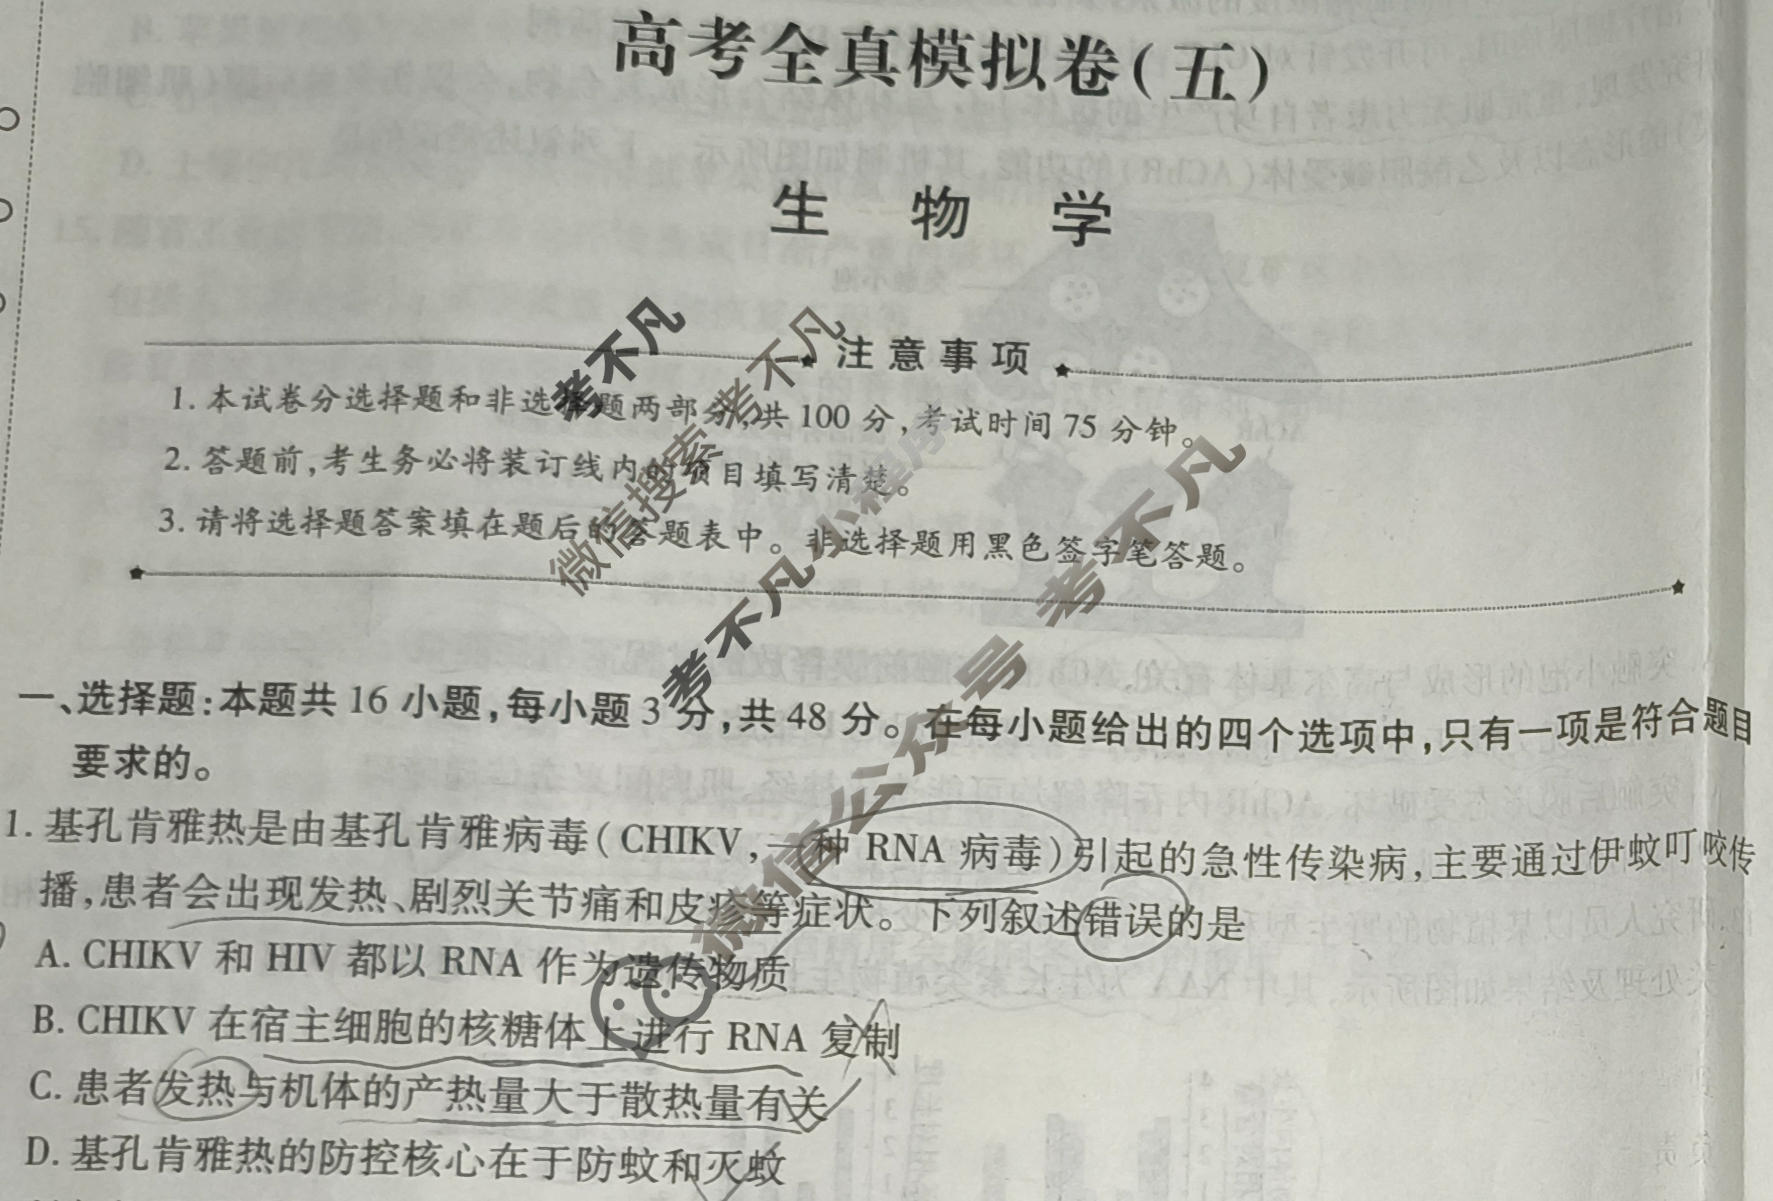 高考全真模拟卷(五)
生 物 学
注意事项
1. 本试卷分选择题和非选择题两部分,共 100 分,考试时间 75 分钟。
2. 答题前,考生务必将装订线内的项目填写清楚。
3. 请将选择题答案填在题后的答题表中。非选择题用黑色签字笔答题。
一、选择题:本题共 16 小题,每小题 3 分,共 48 分。在每小题给出的四个选项中,只有一项是符合题目
要求的。
1. 基孔肯雅热是由基孔肯雅病毒(CHIKV,一种 RNA 病毒)引起的急性传染病,主要通过伊蚊叮咬传
播,患者会出现发热、剧烈关节痛和皮疹等症状。下列叙述错误的是
A. CHIKV 和 HIV 都以 RNA 作为遗传物质
B. CHIKV 在宿主细胞的核糖体上进行 RNA 复制
C. 患者发热与机体的产热量大于散热量有关
D. 基孔肯雅热的防控核心在于防蚊和灭蚊
考不凡
微信搜索 考不凡
考不凡小程序
微信公众号 考不凡